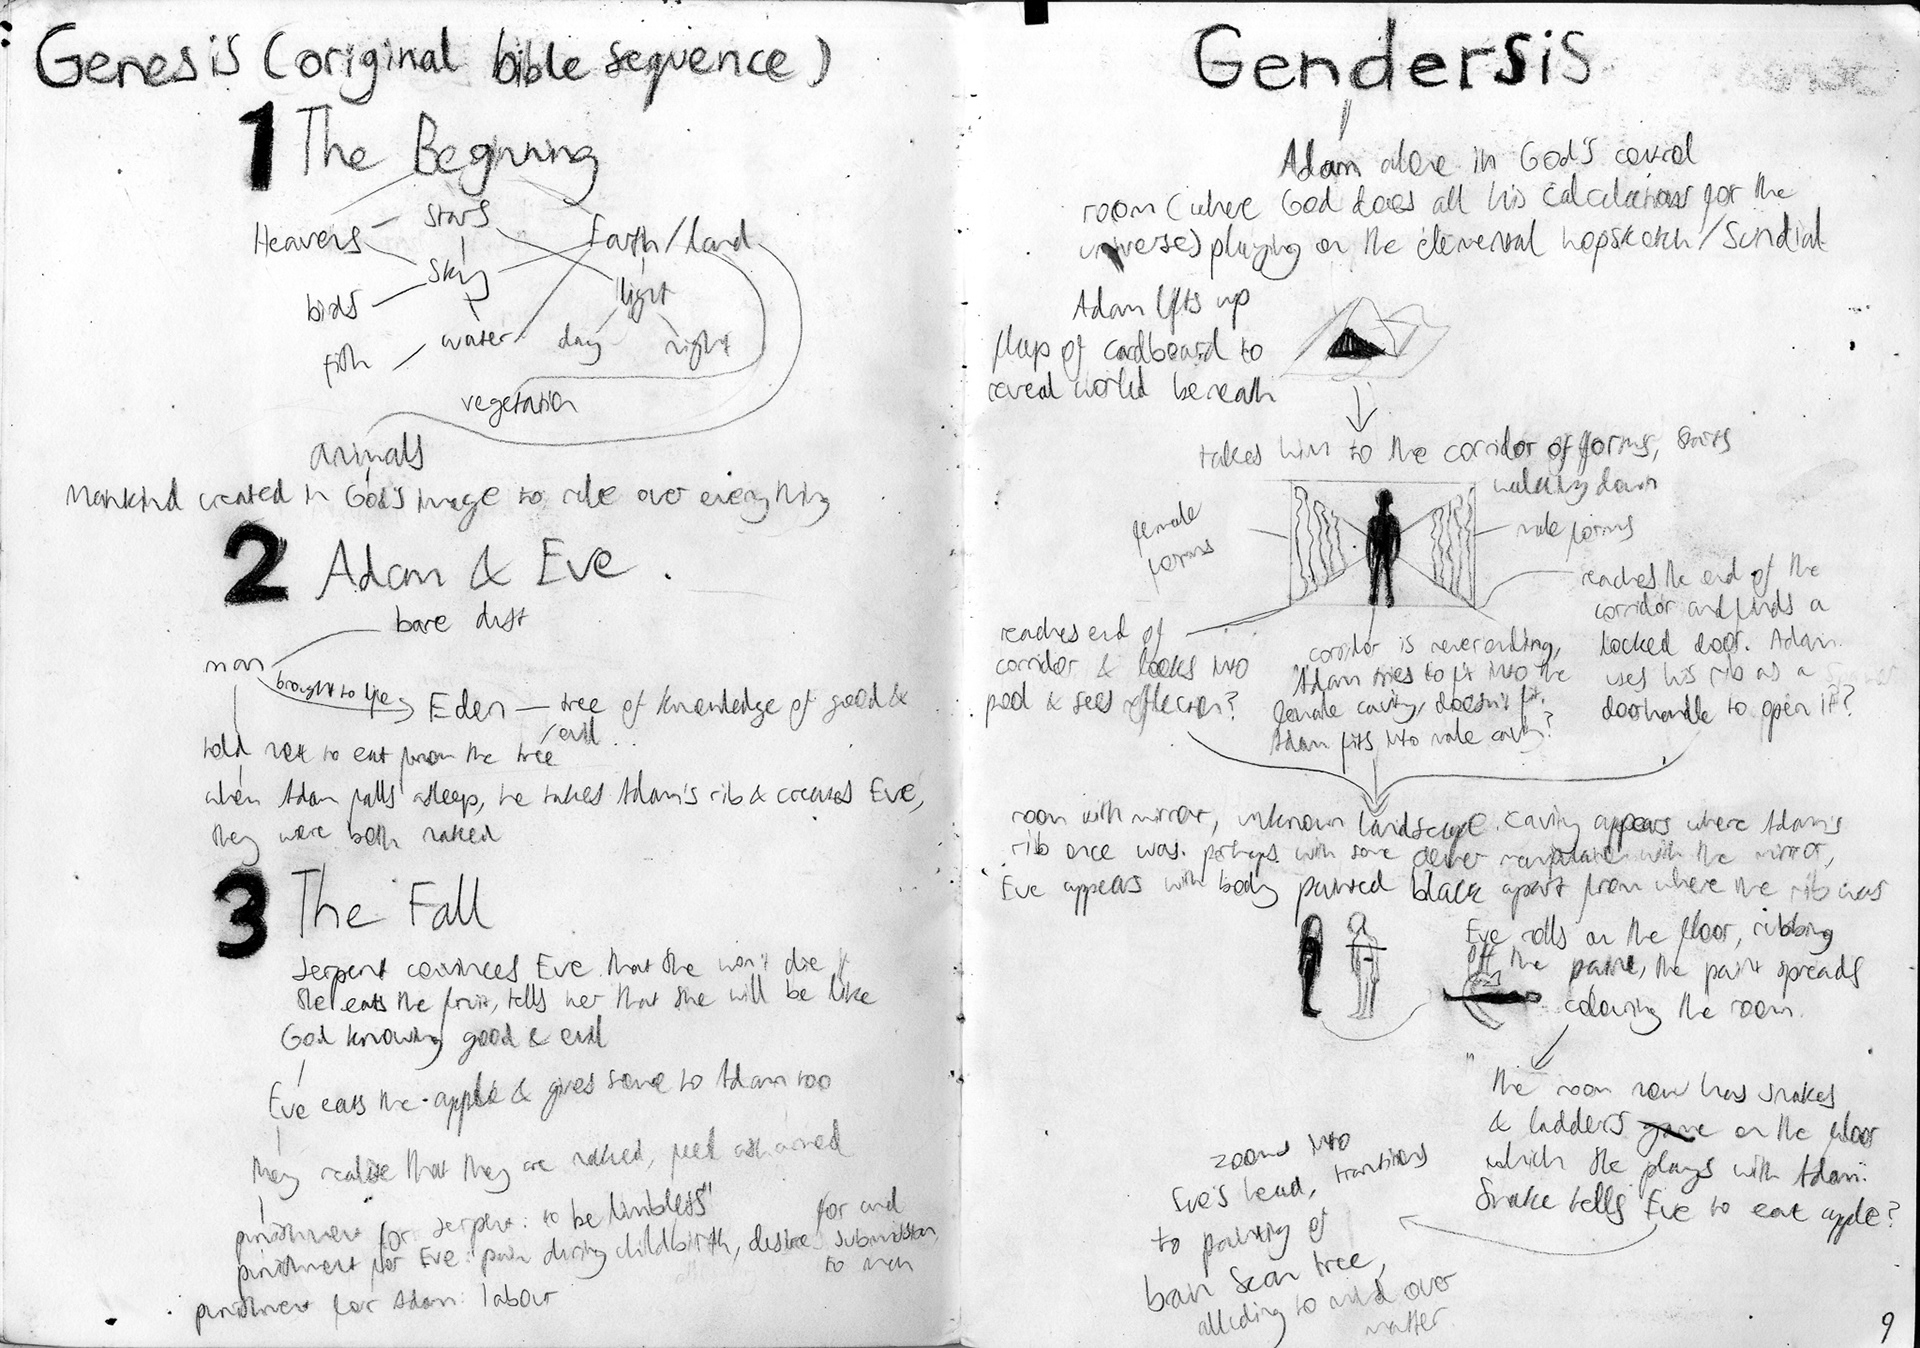 Genesis (original bible sequence)
1 The Beginning
Heavens
stars
Earth/land
sky
birds
light
fish
water
day
night
vegetation
animals
Mankind created in God's image to rule over everything
2 Adam & Eve
bare dust
man
brought to life
Eden — tree of knowledge of good &
evil
told not to eat from the tree
when Adam falls asleep, he takes Adam's rib & creates Eve,
they were both naked
3 The Fall
Serpent convinces Eve that she won't die if
she eats the fruit, tells her that she will be like
God knowing good & evil
Eve eats the apple & gives some to Adam too
They realise that they are naked, feel ashamed
punishment for serpent: to be limbless"
punishment for Eve: pain during childbirth, desire for and submission
to man
punishment for Adam: labour
Gendersis
Adam alone in God's control
room (where God does all his calculations for the
universe) playing on the elemental hopskotch/Sundial
Adam lifts up
flap of cardboard to
reveal world beneath
takes him to the corridor of forms, starts
walking down
female
forms
male forms
reaches end of
corridor & looks into
pool & sees reflection?
corridor is neverending,
Adam tries to fit into the
female cavity, doesn't fit.
Adam fits into male cavity?
reaches the end of the
corridor and finds a
locked door. Adam
uses his rib as a
doorhandle to open it?
room with mirror, unknown landscape. Cavity appears where Adam's
rib once was. perhaps with some clever manipulation with the mirror,
Eve appears with body painted black apart from where the rib was
Eve rolls on the floor, rubbing
off the paint, the paint spreads
colouring the room.
"The room now has snakes
& ladders game on the floor
which she plays with Adam.
Snake tells Eve to eat apple?
zooms into
Eve's head, transitions
to painting of
brain scan tree,
alluding to mind over
matter.
9